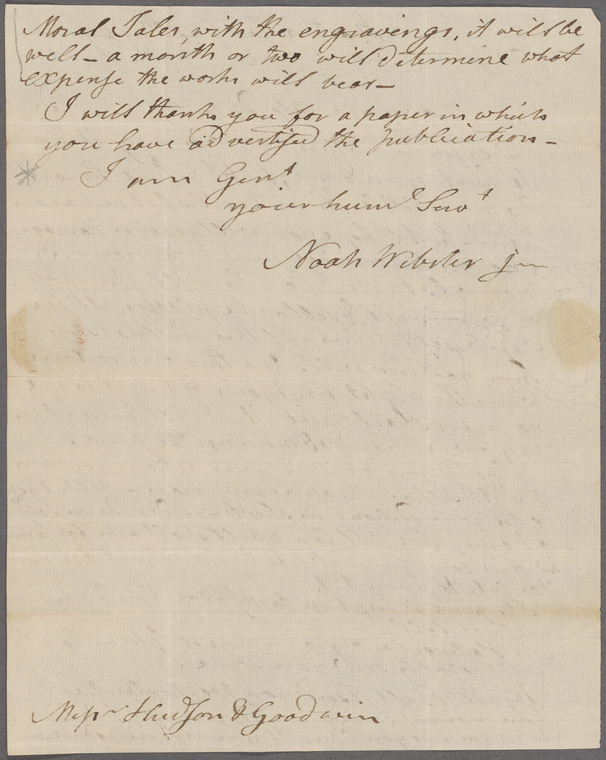 Moral Tales, with the engravings, it will be
well – a month or two will determine what
expense the work will bear –
I will thank you for a paper in which
you have advertised the publication –
I am Gent
your humᵉ Servᵗ
Noah Webster Jun
Messʳ Hudson & Goodwin